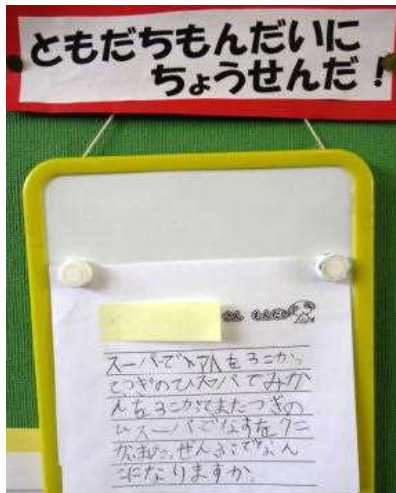 ともだちもんだいに
ちょうせんだ！
さん もんだい
スーパーでトマトを3こかっ
てつぎのひスーパでみか
んを3こかてまたつぎの
ひスーパーでなすを
ぜんぶでなん
こになりますか。